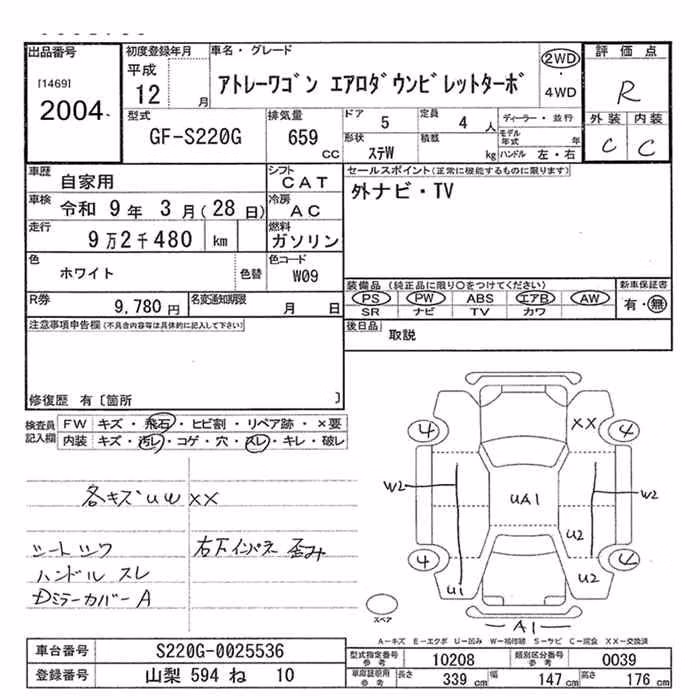 出品番号
[1469]
2004
初度登録年月
平成
12 月
車名・グレード
アトレーワゴン エアロダウンビレットターボ
2WD
・
4WD
評価点
R
外装 内装
C C
型式
GF-S220G
排気量
659 CC
ドア 5
定員 4 人
形状 ステW
積載 kg
ディーラー・並行
モデル年式 年
ハンドル 左・右
車歴 自家用
シフト CAT
車検 令和 9 年 3 月(28 日)
冷房 AC
走行 9万2千480 km
燃料 ガソリン
色 ホワイト 色替
色コード W09
R券 9,780 円
名変通知期限 月 日
セールスポイント(正常に機能するものに限ります)
外ナビ・TV
装備品 (純正品に限り○をつけてください)
PS PW ABS エアB AW
SR ナビ TV カワ
新車保証書
有・無
後日品 取説
注意事項申告欄(不具合内容等は具体的に記入して下さい)
修復歴 有〔箇所 〕
検査員記入欄
FW キズ・飛石・ヒビ割・リペア跡・×要
内装 キズ・汚レ・コゲ・穴・スレ・キレ・破レ
各キズUW XX
シートシワ 右下インパネ歪み
ハンドルスレ
DミラーカバーA
XX
4 4
W2 W2
UA1
U2
4 4
U1 U2
スペア
A1
A-キズ E-エクボ U-凹み W-補修跡 S-サビ C-腐食 XX-交換済
車台番号 S220G-0025536
登録番号 山梨 594 ね 10
型式指定番号 参考 10208
類別区分番号 参考 0039
車庫証明用 参考 長さ 339 cm 幅 147 cm 高さ 176 cm